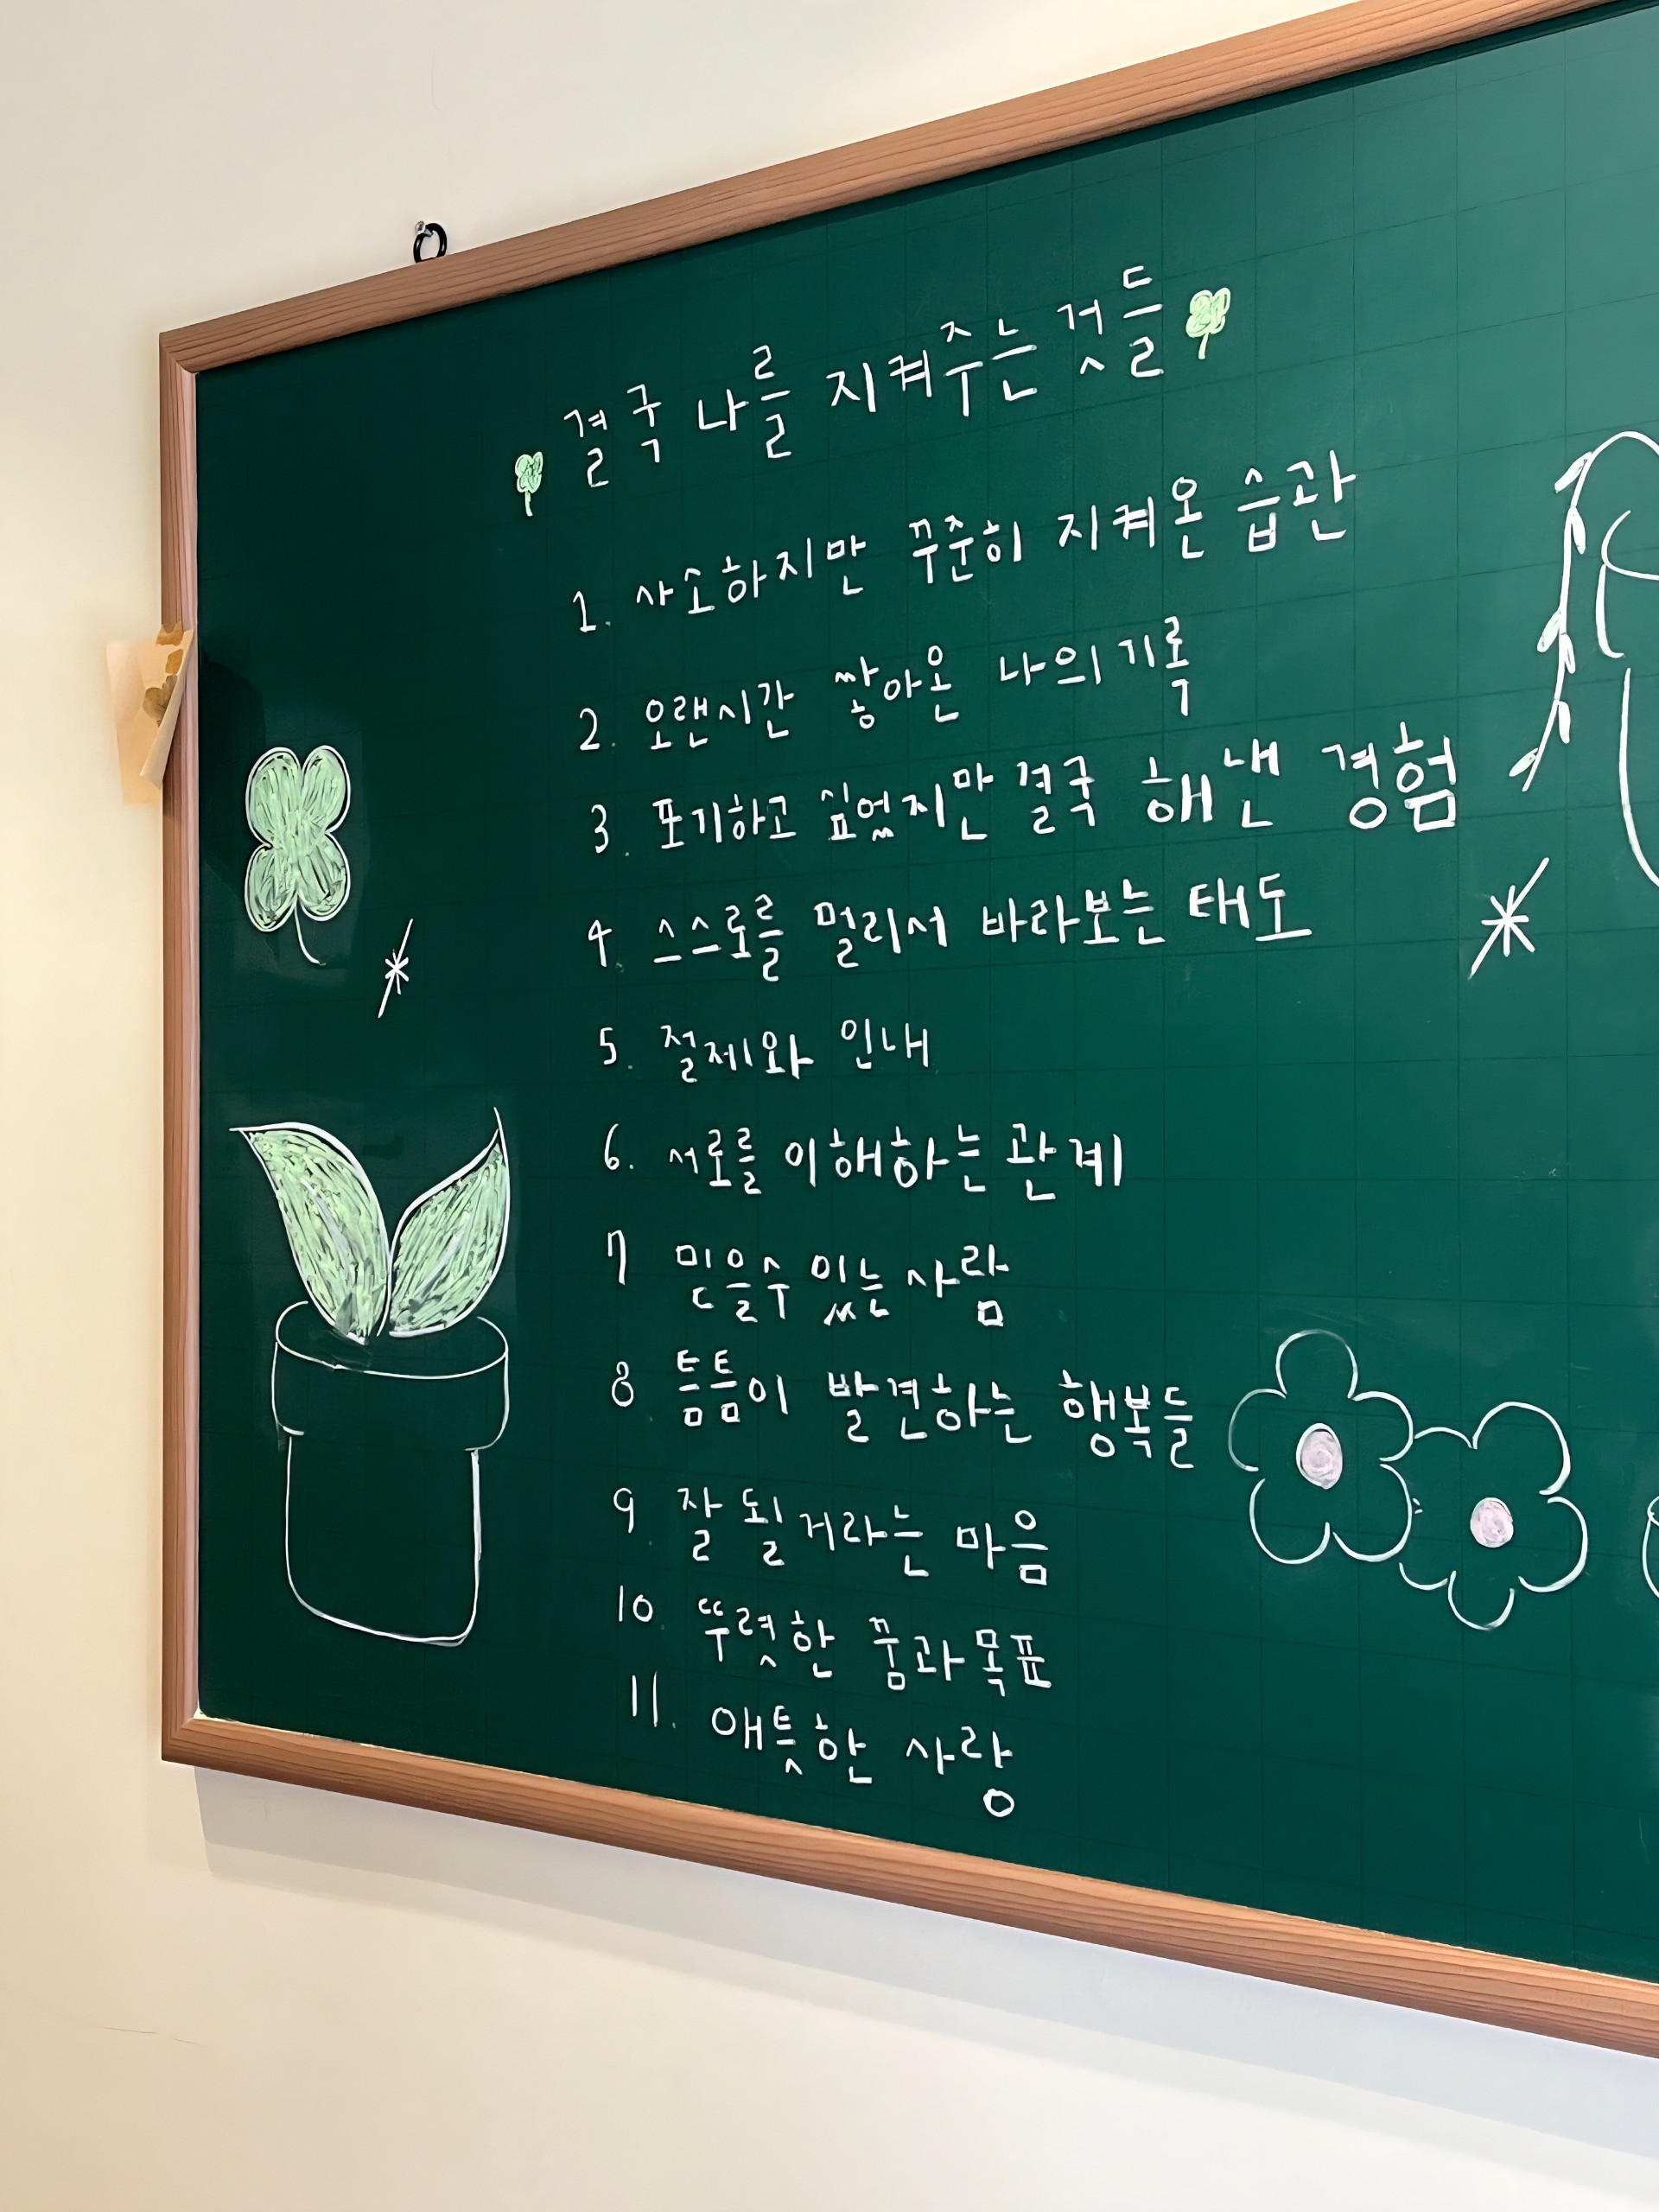 결국 나를 지켜주는 것들
1. 사소하지만 꾸준히 지켜온 습관
2. 오랜시간 쌓아온 나의 기록
3. 포기하고 싶었지만 결국 해낸 경험
4 스스로를 멀리서 바라보는 태도
5. 절제와 인내
6. 서로를 이해하는 관계
7 믿을수 있는 사람
8 틈틈이 발견하는 행복들
9 잘 될거라는 마음
10 뚜렷한 꿈과 목표
11. 애틋한 사랑